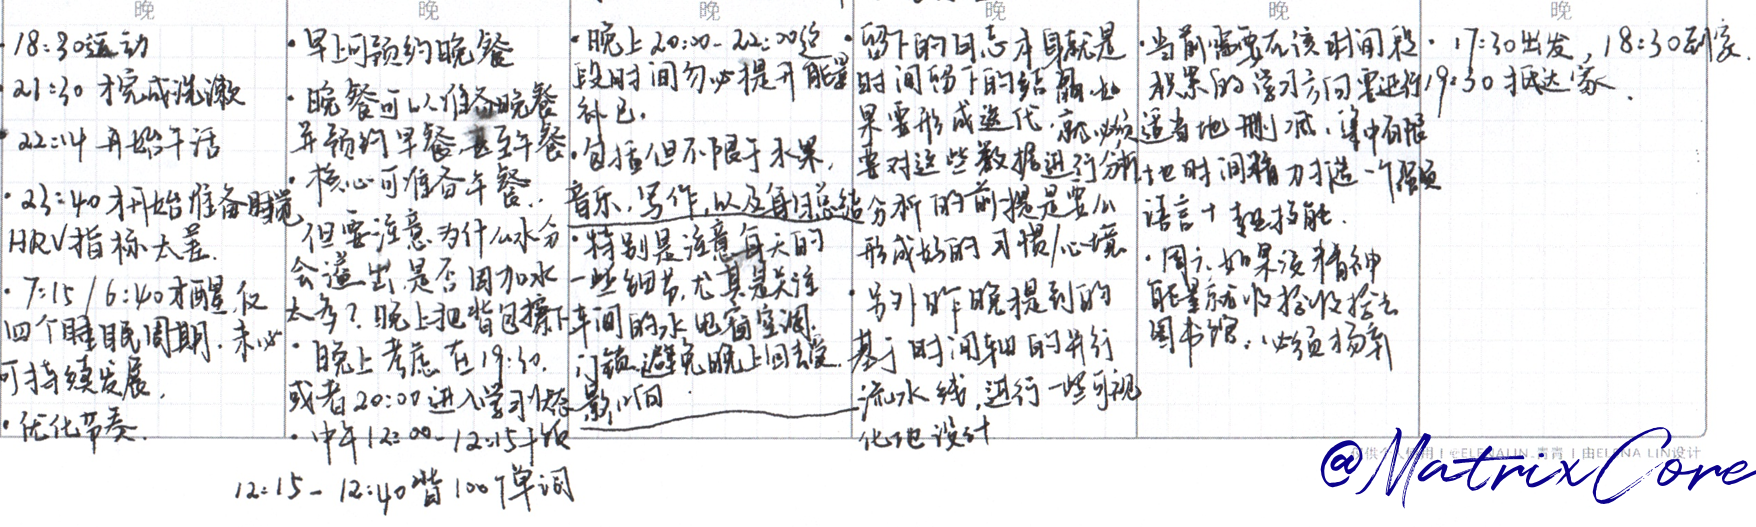 晚
·18:30运动
·21:30才完成洗漱
·22:14开始午话
·23:40才开始准备睡觉
HRV指标太差.
·7:15/6:40才醒,仅
四个睡眠周期.未必
可持续发展.
·优化节奏.
晚
·早上可预约晚餐
·晚餐可以准备晚餐
并预约早餐,甚至午餐
·核心可准备午餐.
但要注意为什么水分
会溢出,是否因加水
太多?晚上把背包擦下
·晚上考虑在19:30.
或者20:00进入学习状态
·中午12:00-12:15干饭
12:15-12:40背100个单词
晚
·晚上20:00-22:00这
段时间务必提升能量
补包.
·包括但不限于水果,
音乐,写作,以及每日总结
·特别是注意每天的
一些细节,尤其是关注
车间的水电窗空调.
门锁.避免晚上回去受
影响
晚
·留下的日志本身就是
时间留下的结晶,如
果要形成迭代.就必须
要对这些数据进行分析
分析的前提是要么
形成好的习惯/心境
·另外昨晚提到的
基于时间轴的并行
流水线,进行一些可视
化地设计
晚
·当前需要在该时间段
积累的学习方向要进行
适当地删减.集中有限
地时间精力打造一个强项
语言+技能.
·周六.如果没精神
能量就收拾收拾去
图书馆.必须扬弃
晚
·17:30出发,18:30到家.
19:30抵达家.
仅供个人使用 | @ELENALIN.青青 | 由ELENA LIN设计
@MatrixCore